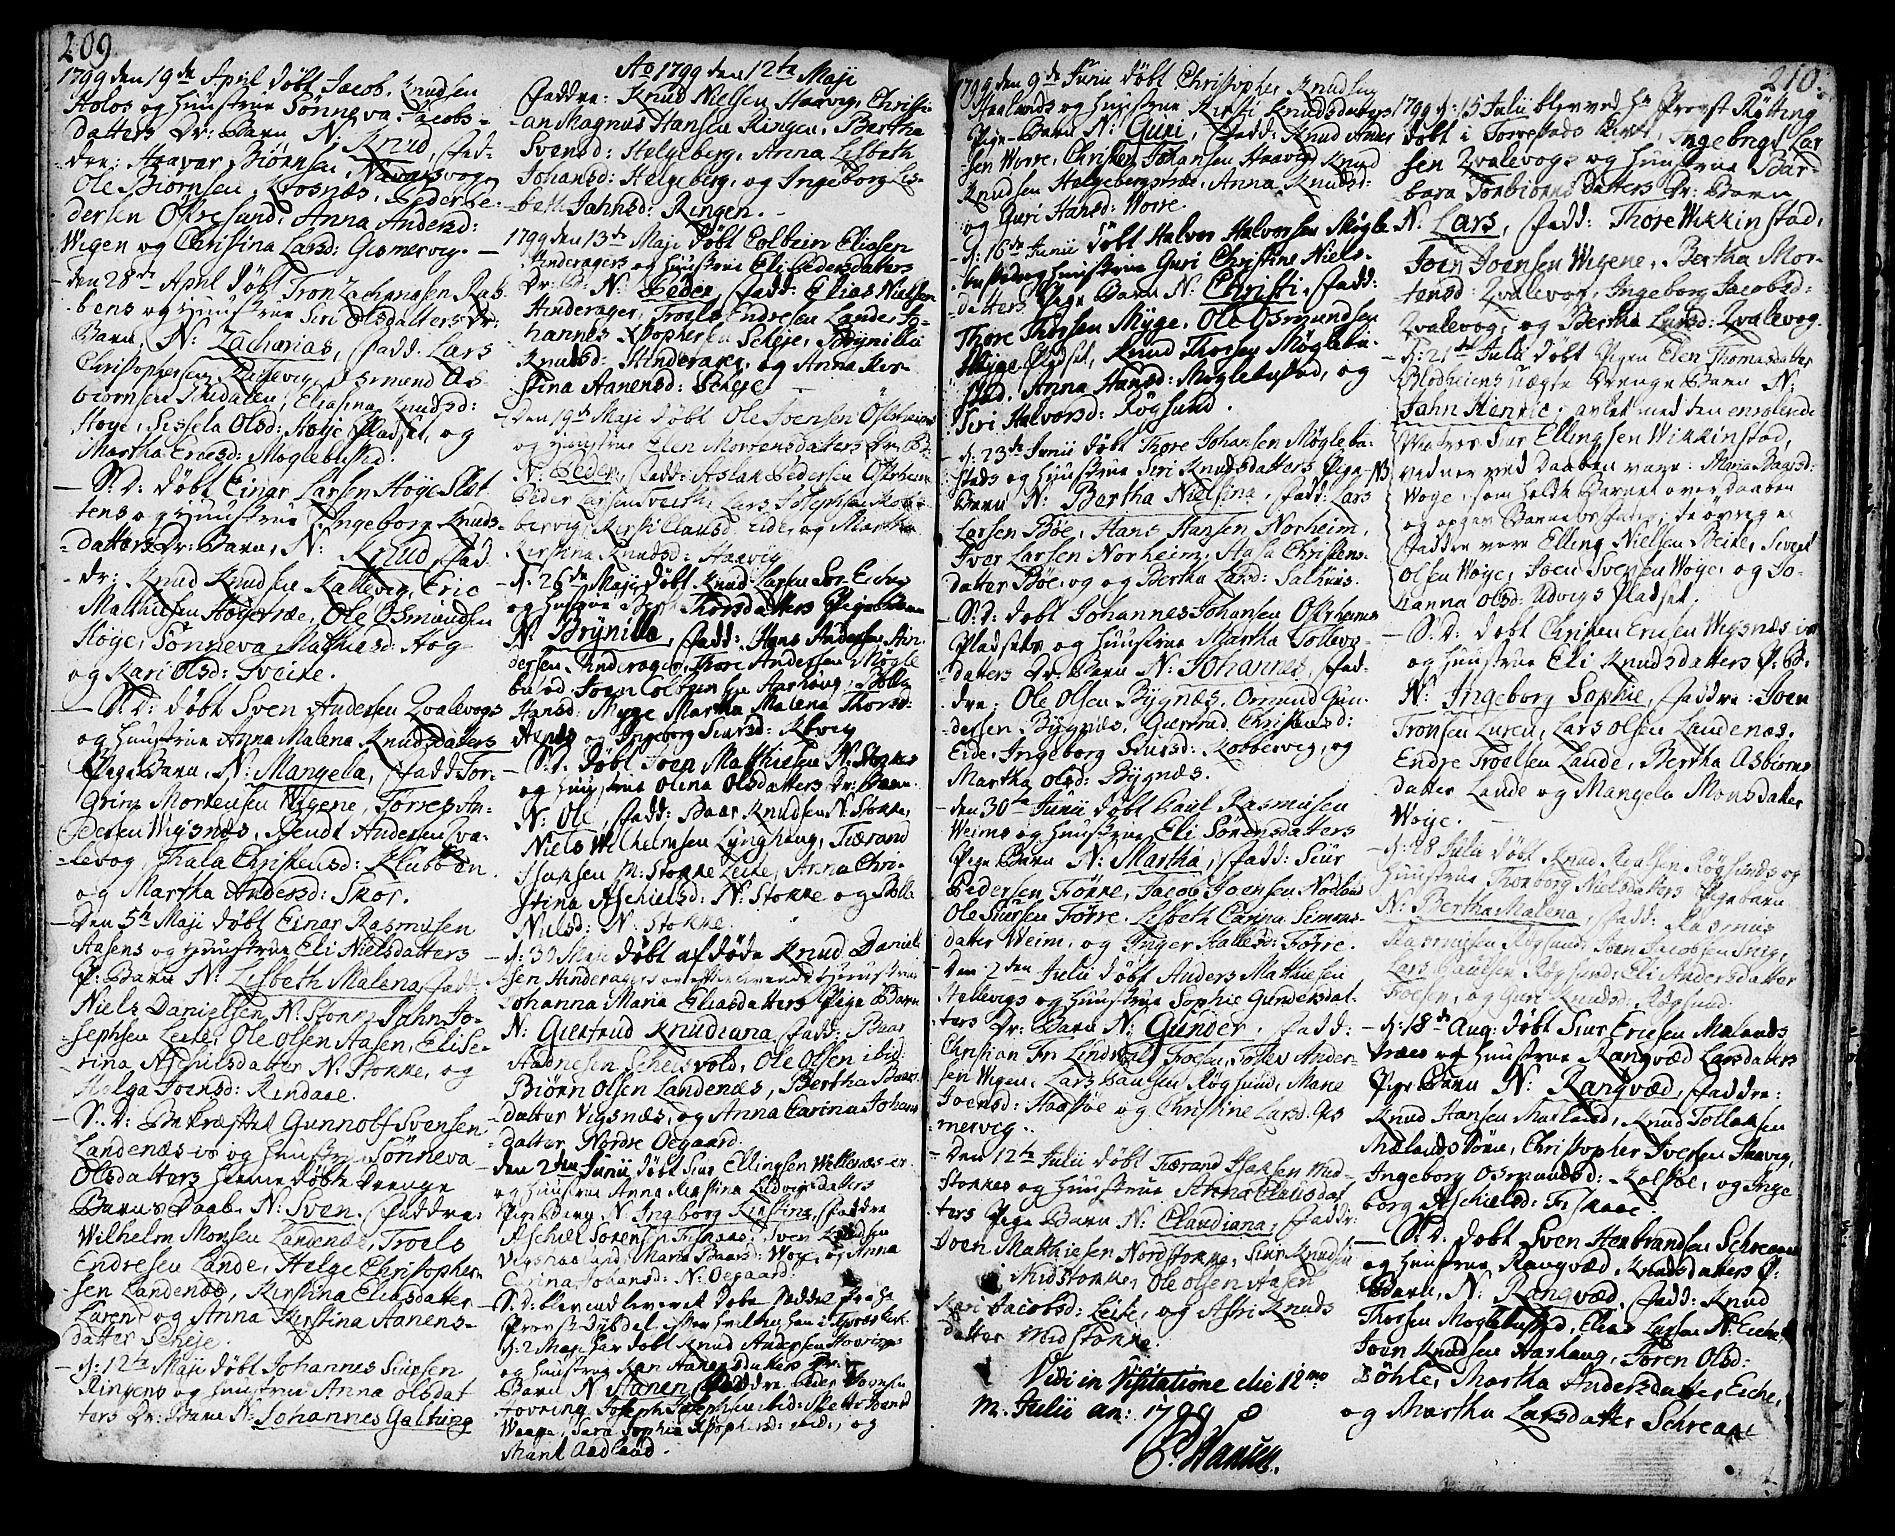 209.
1799 den 19de April døbt Jacob Knudsen
Holos og Hustrue Sønneva Jacobs-
datters Dr: Barn N: Knud, fad-
dre: Haavar Biørnsen,
Ole Biørnsen Krosnæs, Peder Pe-
dersen Østresund, Anna Andersd:
Wigen og Christina Larsd: Giømervig. —
den 28de April døbt Tron Zachariasen Røs-
bens og Hustrue Siri Olsdatters Dr:
Barn, N: Zacharias, fadd: Lars
Christophersen Kallevig, Osmund As-
biørnsen Liudalen, Eliasina Knudsd:
Høye, Sissela Olsd: Høye Pladset, og
Martha Ericsd: Møglebustad.
— S: D: døbt Einar Larsen Høye Slåt
tens og Hustrue Ingeborg Knuds-
datters Dr: Barn, N: Knud, fad-
dr: Knud Knudsen Kallevig, Eric
Malthiesen Høyetræe, Ole Osmundsen
Høye, Sønneva Mathiasd: Høg
og Kari Olsd: Sveike.
— S: D: døbt Sven Andersen Qvalevogs
og Hustrue Anna Malena Knudsdatters
Pige Barn, N: Mangela, fadd: Tor-
grim Mortensen Wigene, Tørres An-
dersen Wigsnæs, Bendt Andersen Qva-
levog, Thala Christensd: Klubben,
og Martha Andersd: Skor.
— Den 5te Maji døbt Einar Rasmusen
Aasens og Hustrue Eli Nielsdatters
P: Barn N: Lisbeth Malena, fadd:
Niels Danielsen N: Stokke, John Jo-
sephsen Leite, Ole Olsen Aasen, Elise-
rina Aschilsdatter N: Stokke, og
Helga Joensd: Rindane.
— S: D: Bekræftet Gunnolf Svensen
Landenæs ies og Hustrue Sønneva
Olsdatters hiemmedøbte Drenge
Barns Daab. N: Sven. Faddre:
Wilhelm Monsen Landenæs, Troels
Endresen Lande, Helge Christopher-
sen Landenæs, Kirstina Eliasdatter
Laren, og Anna Kirstina Aanens-
datter Scheje.
— d: 12te Maji døbt Johannes Siursen
Ringens og Hustrue Anna Olsdat
ters Dr: Barn N: Johannes Galtung
Ao 1799 den 12te Maji
faddre: Knud Nielsen Haavig, Christi-
an Magnus Hansen Ringen, Bertha
Svensd: Helgeberg, Anna Lisbeth
Johansd: Helgeberg, og Ingeborg Lis-
beth Johnsd: Ringen. —
1799 den 13de Maji døbt Colbein Eliasen
Hinderagers og Hustrue Eli Pedersdatters
Dr: B: N: Peder, fadd: Elias Nielsen
Hinderager, Troels Endresen Lande, Jo-
hannes Xstophersen Scheje, Brynilla
Knudsd: Hinderager, og Anna Kir-
stina Aanensd: Scheje.
— den 19de Maji døbt Ole Joensen Østrheims
og Hustrue Elen Mortensdatters Dr: B:
N: Peder, fadd: Aslak Pedersen Østrheim
Peder Larsen Lars Johansen Kob-
bervig, Kirsti Clausd: Eide, og Martha
Kirstina Knudsd: Haavig.
— d: 26de Maji døbt Knud Larsen Sør Eichs
og Hustrue Thorsdatters Pige Barn
N: Brynilla, fadd: Hans Andersen Hin-
deragen, Thore Andersen Møgle
bustad, Joen Colbensen Aarhoug,
Hansd: Myge, Martha Malena Thors-
Aknæs og Ingeborg Siursd: Røvig
— S: D: døbt Joen Matthiesen N: Stokkes
og Hustrue Olena Olsdatters Dr: Barn
N: Ole, fadd: Baar Knudsen N: Stokke,
Niels Wilhelmsen Lynghoug, Tiærand
Isaksen M: Stokke Leite, Anna Chri-
stina Aschielsd: N: Stokke og
Nielsd: N: Stokke.
— d: 30 Maji døbt afdøde Knud Daniel-
sen Hinderagers og efterlevende Hustrue
Johanna Maria Eliasdatters Pige Barn
N: Giertrud Knudiana, fadd: Baar
Andresen Schiesvold, Ole Olsen ibid:
Biørn Olsen Landenæs, Bertha Baars-
datter Vigsnæs, og Anna Carina Johans
datter Nordre Oegaard.
den 2den Junii døbt Siur Ellingsen Wikenæs ier
og Hustrue Anna Kirstina Ludvigsdatters
Pigebarn N: Ingborg Kirstina, Faddre
Aschiel Sørensen Fiskaae, Sven Knudsen
Vigsnæs land, Maria Baarsd: Woje, og Anna
Carina Johansd: N: Oegaard.
— S: D: blev indleveret døbe Seddel fra Hr
Provst Dybdal, efter hvilken han i
d: 2 Maji har døbt Knud Andersen Hovrings
og Hustrue Kari Aanensdatters Dr:
Barn N: Aanen, Faddre: Peder
Hovring, Joseph Josephsen ibid:
Waage, Sara Sophia Xstophersd: ibid:, og
Marit Aadland.
210.
1799 den 9de Junii døbt Christopher Knudsen
Haalands og Hustrue Kirsti Knudsdatters
Pige Barn N: Guri, fadd: Knud Aner
sen Worre, Christen Johansen Haavig, Knud
Knudsen Helgebergstræ, Anna Knudsd:
og Guri Hansd: Worre.
— d: 16de Junii døbt Halvor Halvorsen Møgle
bustad og Hustrue Guri Christine Niels-
datters Pige Barn N: Christi, fadd:
Thore Thorsen Myge, Ole Osmundsen
Myge Pladset, Knud Thorsen Møglebu-
stad, Anna Hansd: Møglebustad, og
Siri Halvorsd: Røgsund.
— d: 23de Junii døbt Thore Johansen Møglebu-
stads og Hustrue Siri Knudsdatters Pige
Barn N: Bertha Nielsina, fadd: Lars
Larsen Bøe, Hans Hansen Norheim,
Iver Larsen Norheim, Aasa Christens-
datter Bøe, og Bertha Larsd: Salhuus.
— S: D: døbt Johannes Johansen Østrheims
Pladsets og Hustrue Martha Tollevs-
datters Dr: Barn N: Johannes, fad-
dre: Ole Olsen Bygnæs, Osmund Gun-
dersen Bygnæs, Giertrud Christensd:
Eide, Ingeborg Siursd: Kobbervig, og
Martha Olsd: Bygnæs.
— den 30te Junii døbt Poul Rasmusen
Weims og Hustrue Eli Sørensdatters
Pige Barn N: Martha, fadd: Siur
Pedersen Førre, Jacob Joensen Nodland,
Ole Siursen Førre, Lisbeth Canna Simens-
datter Weim, og Inger Hallesd: Førre.
— Den 7den Julii døbt Anders Matthiesen
Hellevigs og Hustrue Sophie Gundersdat-
ters Dr: Barn N: Gunder. fadd:
Christian Fr: Lindvald Froesen, Tollev Ander-
sen Wigen, Lars Paulsen Røgsund, Marie
Joensd: Haastøe og Christine Larsd: Giø
mervig.
— Den 12te Julii døbt Tiærand Isaksen Mid-
Stokkes og Hustrue Anna Clausdat
ters Pige Barn N: Claudiana, fadd:
Joen Matthiesen Nordstokke, Siur Knudsen
Midstokke, Ole Olsen Aasen,
Kari Jacobsd: Leite, og Astri Knuds
datter Midstokke.
Vidi in Visitatione die 12mo
m. Julii an: 1799
P. Hansen.
1799 d: 15 Julii blev ved Hr Provst Rytting
døbt i Torvestads Kirke, Ingebrigt Lar
sen Qvalevogs og Hustrue Bar-
bara Torbiørnsdatters Dr: Barn
N: Lars, fadd: Thore Wikkinstad,
Joen Joensen Wigene, Bertha Mor-
tensd: Qvalevog, Ingeborg Jacobsd:
Qvalevog, og Bertha Larsd: Qvalevog.
— d: 21de Julii døbt Pigen Elen Thomasdatter
Blodheiens uægte Drenge Barn N:
Jahn Henric, avlet med den enrolende
Matros Siur Ellingsen Wikkinstad,
vidner ved Daaben vare: Maria Baarsd:
Woye, som holdt Barnet over Daaben
og opgav Barnefaderen; de øvrige
faddre vare Elling Nielsen Beite, Sivert
Olsen Woye, Joen Svensen Woye, og Jo-
hanna Olsd: Udvigs Pladset.
NB
— S: D: døbt Christen Ericsen Wigsnæs ies
og Hustrue Eli Knudsdatters P: B:
N: Ingeborg Sophie, faddre: Joen
Tronsen Luren, Lars Olsen Landenæs,
Endre Troelsen Lande, Bertha Asbiørns
datter Lande og Mangela Monsdatter
Woye.
— d: 28 Julii døbt Knud Roalsen Røgsunds og
Hustrue Thorborg Nielsdatters Pigebarn
N: Bertha Malena, fadd: Rasmus
Rasmusen Røgsund, Joen Jacobsen Snig,
Lars Paulsen Røgsund, Eli Andersdatter
Froesen, og Guri Knudsd: Røgsund.
— d: 18de Aug: døbt Siur Ericsen Mælands
træes og Hustrue Rangvæd Larsdatters
Pige Barn N: Rangvæd, faddre:
Knud Hansen Mæland, Knud Tollaksen
Mælands Tørre, Christopher Iversen Haavig,
Ingeborg Osmundsd: Kolstøe, og Inge
borg Aschielsd: Fiskaae.
— S: D: døbt Sven Henbrandsen Schreane
og Hustrue Rangvæd Knudsdatters P:
Barn, N: Rangvæd, fadd: Knud
Thorsen Møglebustad, Elias Larsen N: Eiche,
Joen Knudsen Aarhaug, Søren Olsd:
Bøhle, Martha Andersdatter Eiche,
og Martha Larsdatter Schreane